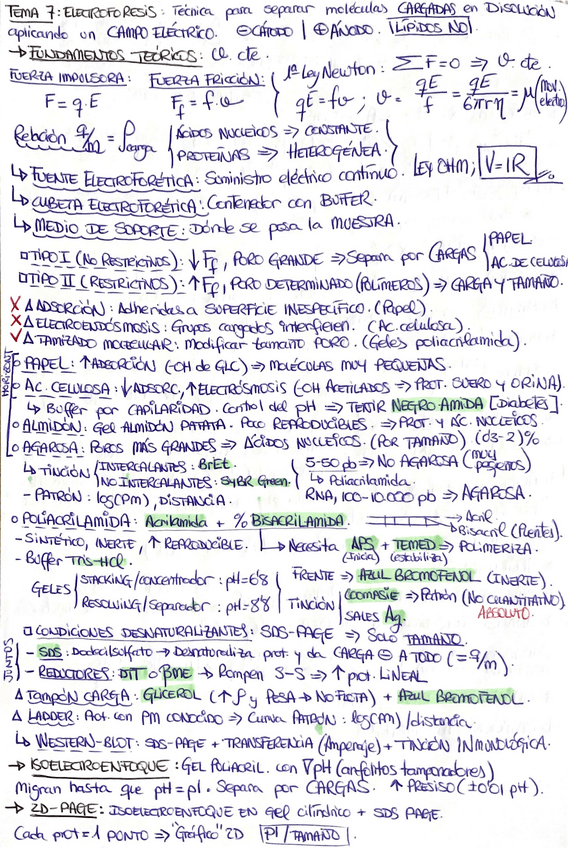 TEMA 7: ELECTROFORESIS: Técnica para separar moléculas CARGADAS en DISOLUCIÓN
aplicando un CAMPO ELÉCTRICO. ⊖CÁTODO | ⊕ÁNODO. LÍPIDOS NO
→ FUNDAMENTOS TEÓRICOS: v. cte.
FUERZA IMPULSORA: FUERZA FRICCIÓN: 1ª Ley Newton: ΣF=0 ⇒ v. cte.
F = q.E F_f = f.v qE = fv ; v = qE/f = qE/6πrη = μ (mov. electro)
Relación q/m = ρ carga ÁCIDOS NUCLEICOS ⇒ CONSTANTE.
PROTEÍNAS ⇒ HETEROGÉNEA.
↳ FUENTE ELECTROFORÉTICA: Suministro eléctrico contínuo. LEY OHM; V=IR
↳ CUBETA ELECTROFORÉTICA: Contenedor con BUFFER.
↳ MEDIO DE SOPORTE: Dónde se posa la MUESTRA.
□ TIPO I (NO RESTRICTIVOS): ↓F_f, PORO GRANDE ⇒ Separa por CARGAS PAPEL
AC. DE CELULOSA
□ TIPO II (RESTRICTIVOS): ↑F_f, PORO DETERMINADO (POLÍMEROS) ⇒ CARGA Y TAMAÑO.
X Δ ADSORCIÓN: Adheridas a SUPERFICIE INESPECÍFICA. (Papel).
X Δ ELECTROENDÓSMOSIS: Grupos cargados interfieren. (AC. celulosa).
✓ Δ TAMIZADO MOLECULAR: Modificar tamaño PORO. (Geles poliacrilamida).
HORIZONT
○ PAPEL: ↑ADSORCIÓN (-OH de GLC) ⇒ MOLÉCULAS MUY PEQUEÑAS.
○ AC. CELULOSA: ↓ADSORC, ↑ELECTRÓSMOSIS (-OH ACETILADOS ⇒ PROT. SUERO Y ORINA).
↳ Buffer por CAPILARIDAD. Control del pH ⇒ TEÑIR NEGRO AMIDA [Diabetes].
○ ALMIDÓN: Gel ALMIDÓN PATATA. Poco REPRODUCIBLES. ⇒ PROT. Y ÁC. NUCLEICOS.
○ AGAROSA: POROS MÁS GRANDES ⇒ ÁCIDOS NUCLEICOS. (POR TAMAÑO) (0'3-2)%
↳ TINCIÓN INTERCALANTES: BrEt. 5-50 pb ⇒ NO AGAROSA (muy pequeños)
NO INTERCALANTES: SYBR Green. ↳ Poliacrilamida.
- PATRÓN: log(PM), DISTANCIA. RNA, 100-10.000 pb ⇒ AGAROSA.
○ POLIACRILAMIDA: Acrilamida + % BISACRILAMIDA. → Acril.
→ Bisacril (Puentes).
- SINTÉTICO, INERTE, ↑ REPRODUCIBLE. ↳ Necesita APS + TEMED ⇒ POLIMERIZA.
(Inicia) (estabiliza)
- Buffer Tris-HCl.
GELES STACKING/concentrador: pH=6'8 FRENTE ⇒ AZUL BROMOFENOL (INERTE).
RESOLVING/separador: pH=8'8 TINCIÓN COOMASIE ⇒ Patrón (NO CUANTITATIVO)
SALES Ag. ABSOLUTO.
□ CONDICIONES DESNATURALIZANTES: SDS-PAGE ⇒ Solo TAMAÑO.
JUNTOS
- SDS: Dodecilsulfato → Desnaturaliza prot. y da CARGA ⊖ A TODO (= q/m).
- REDUCTORES: DTT o βME → Rompen S-S ⇒ ↑ prot. LINEAL
Δ TAMPÓN CARGA: GLICEROL (↑ρ y PESA → NO FLOTA) + AZUL BROMOFENOL.
Δ LADDER: Prot. con PM CONOCIDO ⇒ Curva PATRÓN: log(PM)/distancia.
↳ WESTERN-BLOT: SDS-PAGE + TRANSFERENCIA (Amperaje) + TINCIÓN INMUNOLÓGICA.
→ ISOELECTROENFOQUE: GEL POLIACRIL. con ∇pH (anfolitos tamponadores)
Migran hasta que pH = pI. Separa por CARGAS. ↑ PRESISO (±0'01 pH).
→ 2D-PAGE: ISOELECTROENFOQUE en gel cilíndrico + SDS PAGE.
Cada prot = 1 PONTO ⇒ "Gráfico" 2D PI/TAMAÑO.